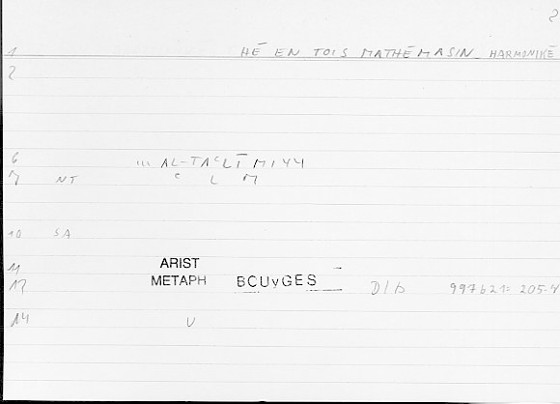 2
1 HĒ EN TOIS MATHĒMASIN HARMONIKĒ
2
6 ... AL-TAʿLĪMIYY
7 NT ʿ L M
10 SA
11 ARIST
12 METAPH BCUvGES D/b 997b21: 205.4
14 V